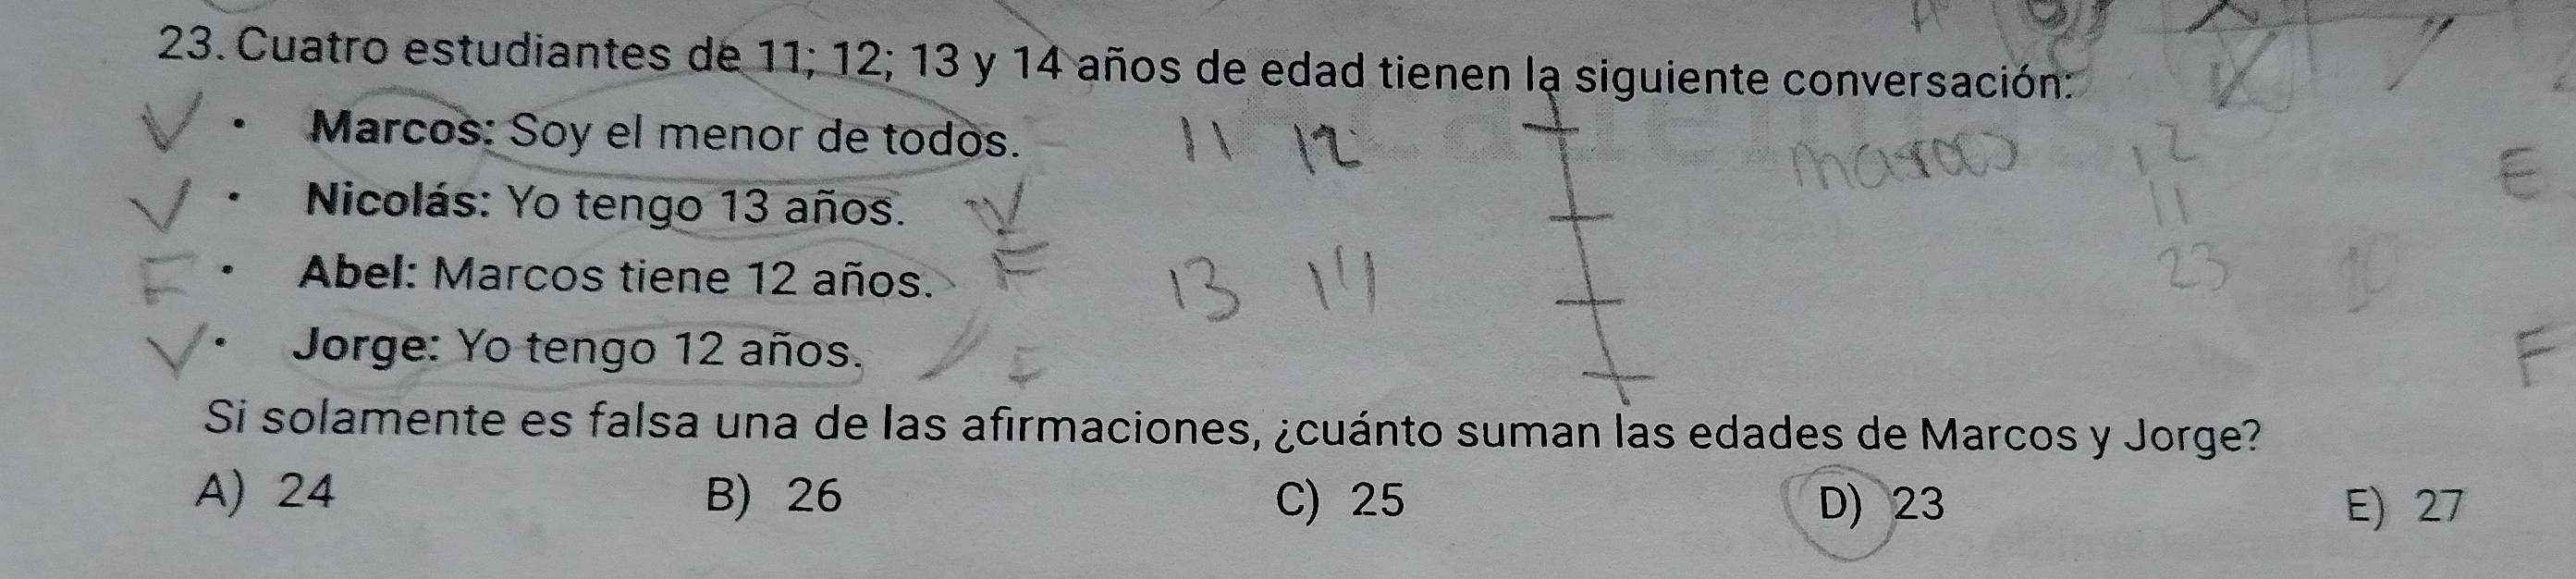 23. Cuatro estudiantes de 11; 12; 13 y 14 años de edad tienen la siguiente conversación:
V • Marcos: Soy el menor de todos. 11 12 marcos 12
E
V • Nicolás: Yo tengo 13 años. V 11
F • Abel: Marcos tiene 12 años. F 13 14 23
V • Jorge: Yo tengo 12 años. F F
Si solamente es falsa una de las afirmaciones, ¿cuánto suman las edades de Marcos y Jorge?
A) 24 B) 26 C) 25 D) 23 E) 27